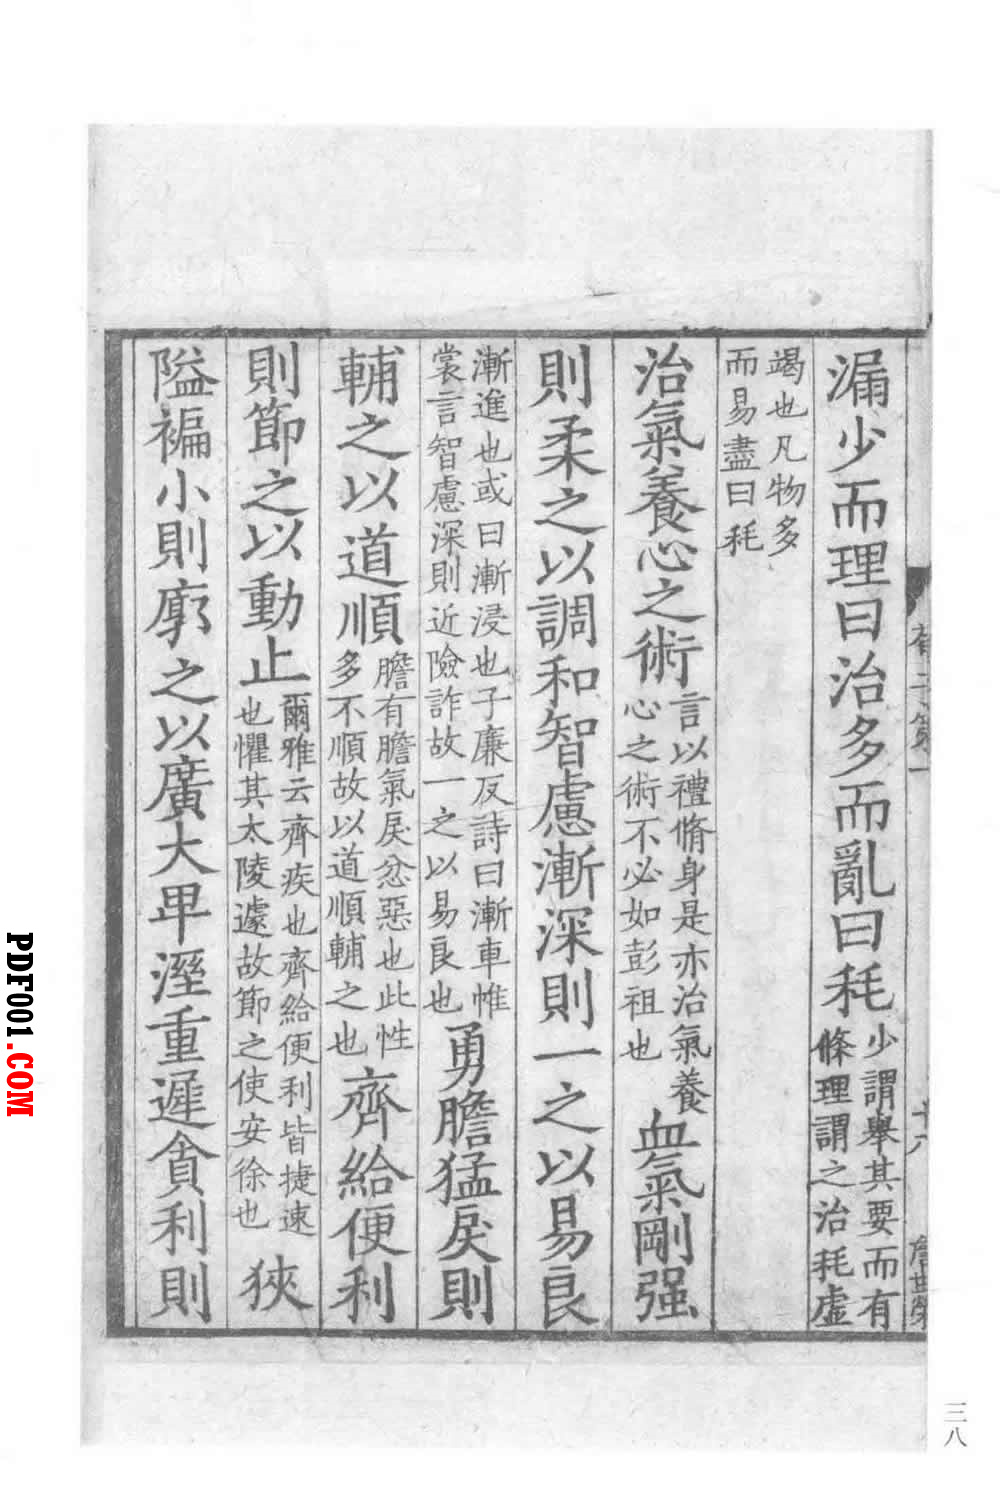 漏少而理曰治多而亂曰秏少謂舉其要而有條理謂之治秏虛
竭也凡物多而易盡曰秏
治氣養心之術言以禮脩身是亦治氣養心之術不必如彭祖也血氣剛强
則柔之以調和智慮漸深則一之以易良
漸進也或曰漸浸也子廉反詩曰漸車帷裳言智慮深則近險詐故一之以易良也勇膽猛戾則
輔之以道順膽有膽氣戾忿惡也此性多不順故以道順輔之也齊給便利
則節之以動止爾雅云齊疾也齊給便利皆捷速也懼其太陵遽故節之使安徐也狹
隘褊小則廓之以廣大卑溼重遲貪利則
荀子第一
十六
三八
PDF001.COM